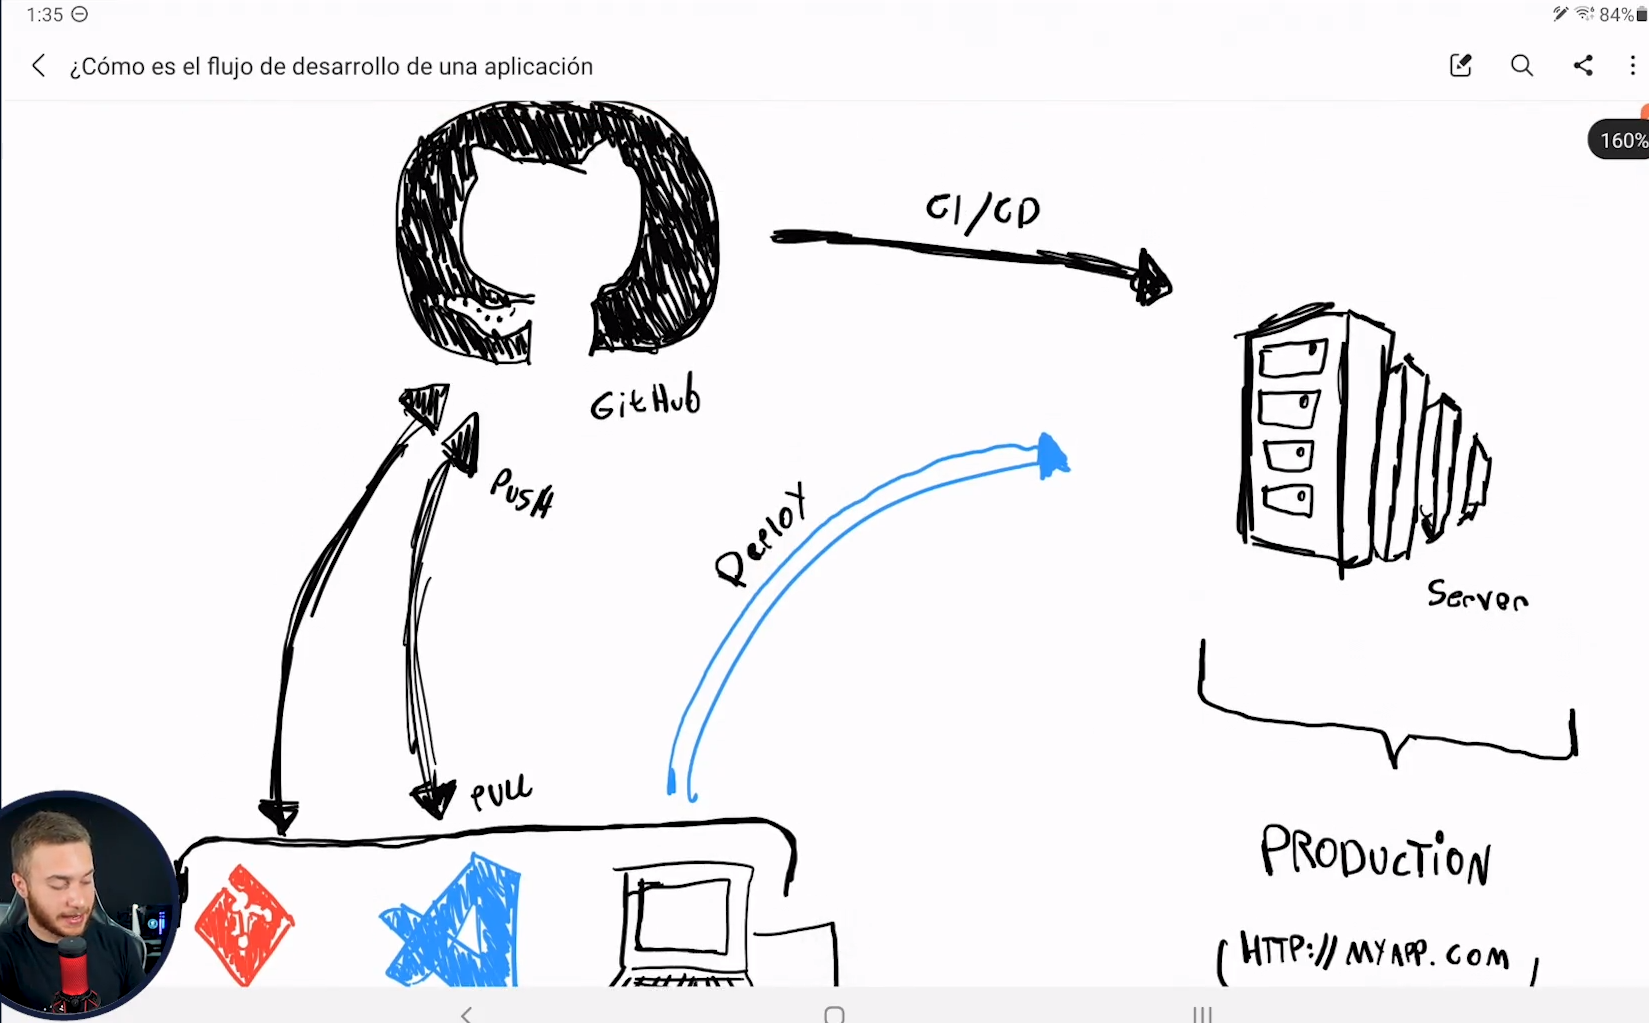 1:35
84%
¿Cómo es el flujo de desarrollo de una aplicación
160%
CI/CD
GitHub
PUSH
Deploy
Server
PULL
PRODUCTION
(HTTP://MYAPP.COM)